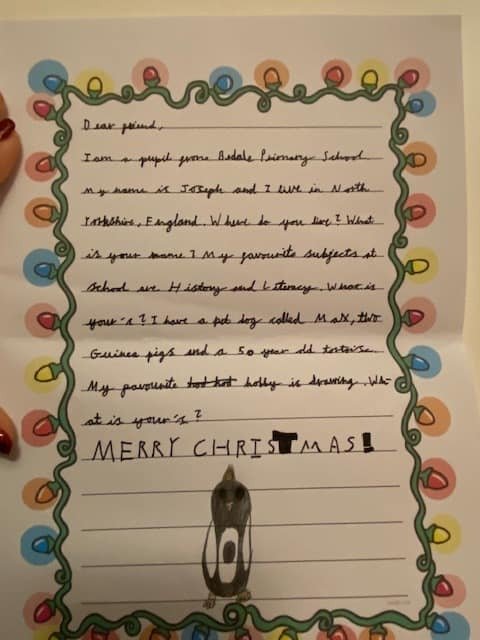 Dear friend,
I am a pupil from Bedale Primary School
my name is Joseph and I live in North
Yorkshire, England. Where do you live? What
is your name? My favourite subjects at
school are History and Literacy. What is
your's? I have a pet dog called Max, two
Guinea pigs and a 50 year old tortoise.
My favourite hobby is drawing. Wh-
at is your's?
MERRY CHRISTMAS!